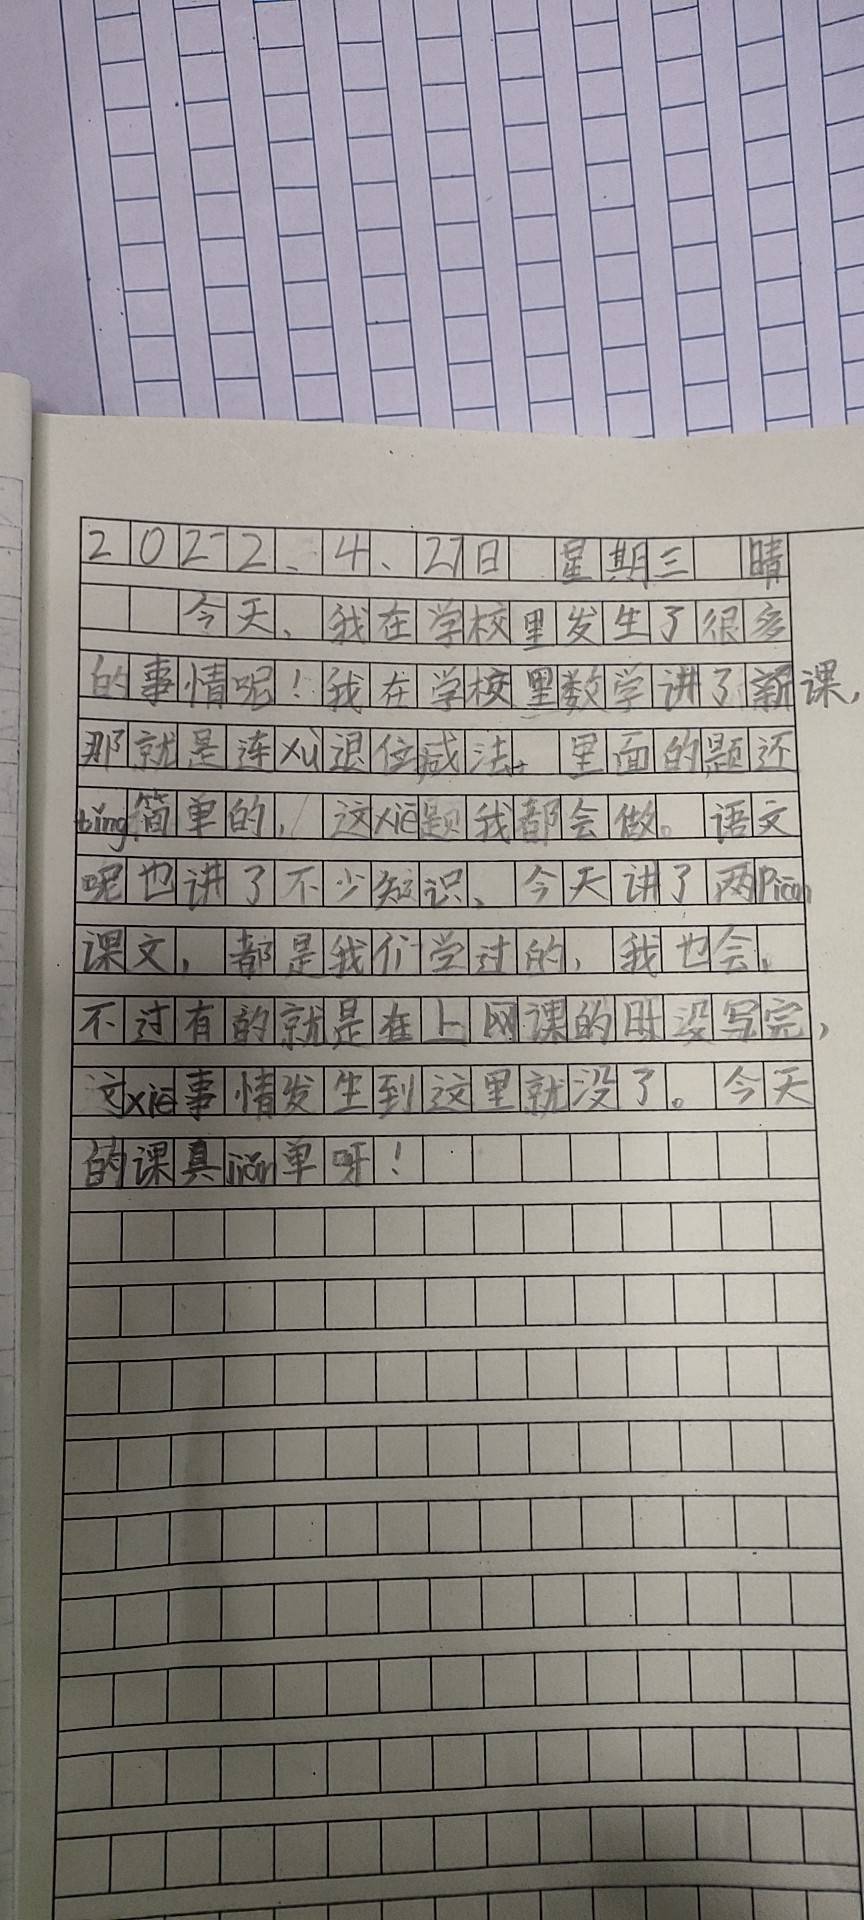 2022、4、27日 星期三 晴
今天、我在学校里发生了很多
的事情呢！我在学校里数学讲了新课，
那就是连xù退位减法。里面的题还
tǐng简单的，这xiē题我都会做。语文
呢也讲了不少知识、今天讲了两Piān
课文，都是我们学过的，我也会。
不过有的就是在上网课的时没写完，
这xiē事情发生到这里就没了。今天
的课真jiǎn单呀！